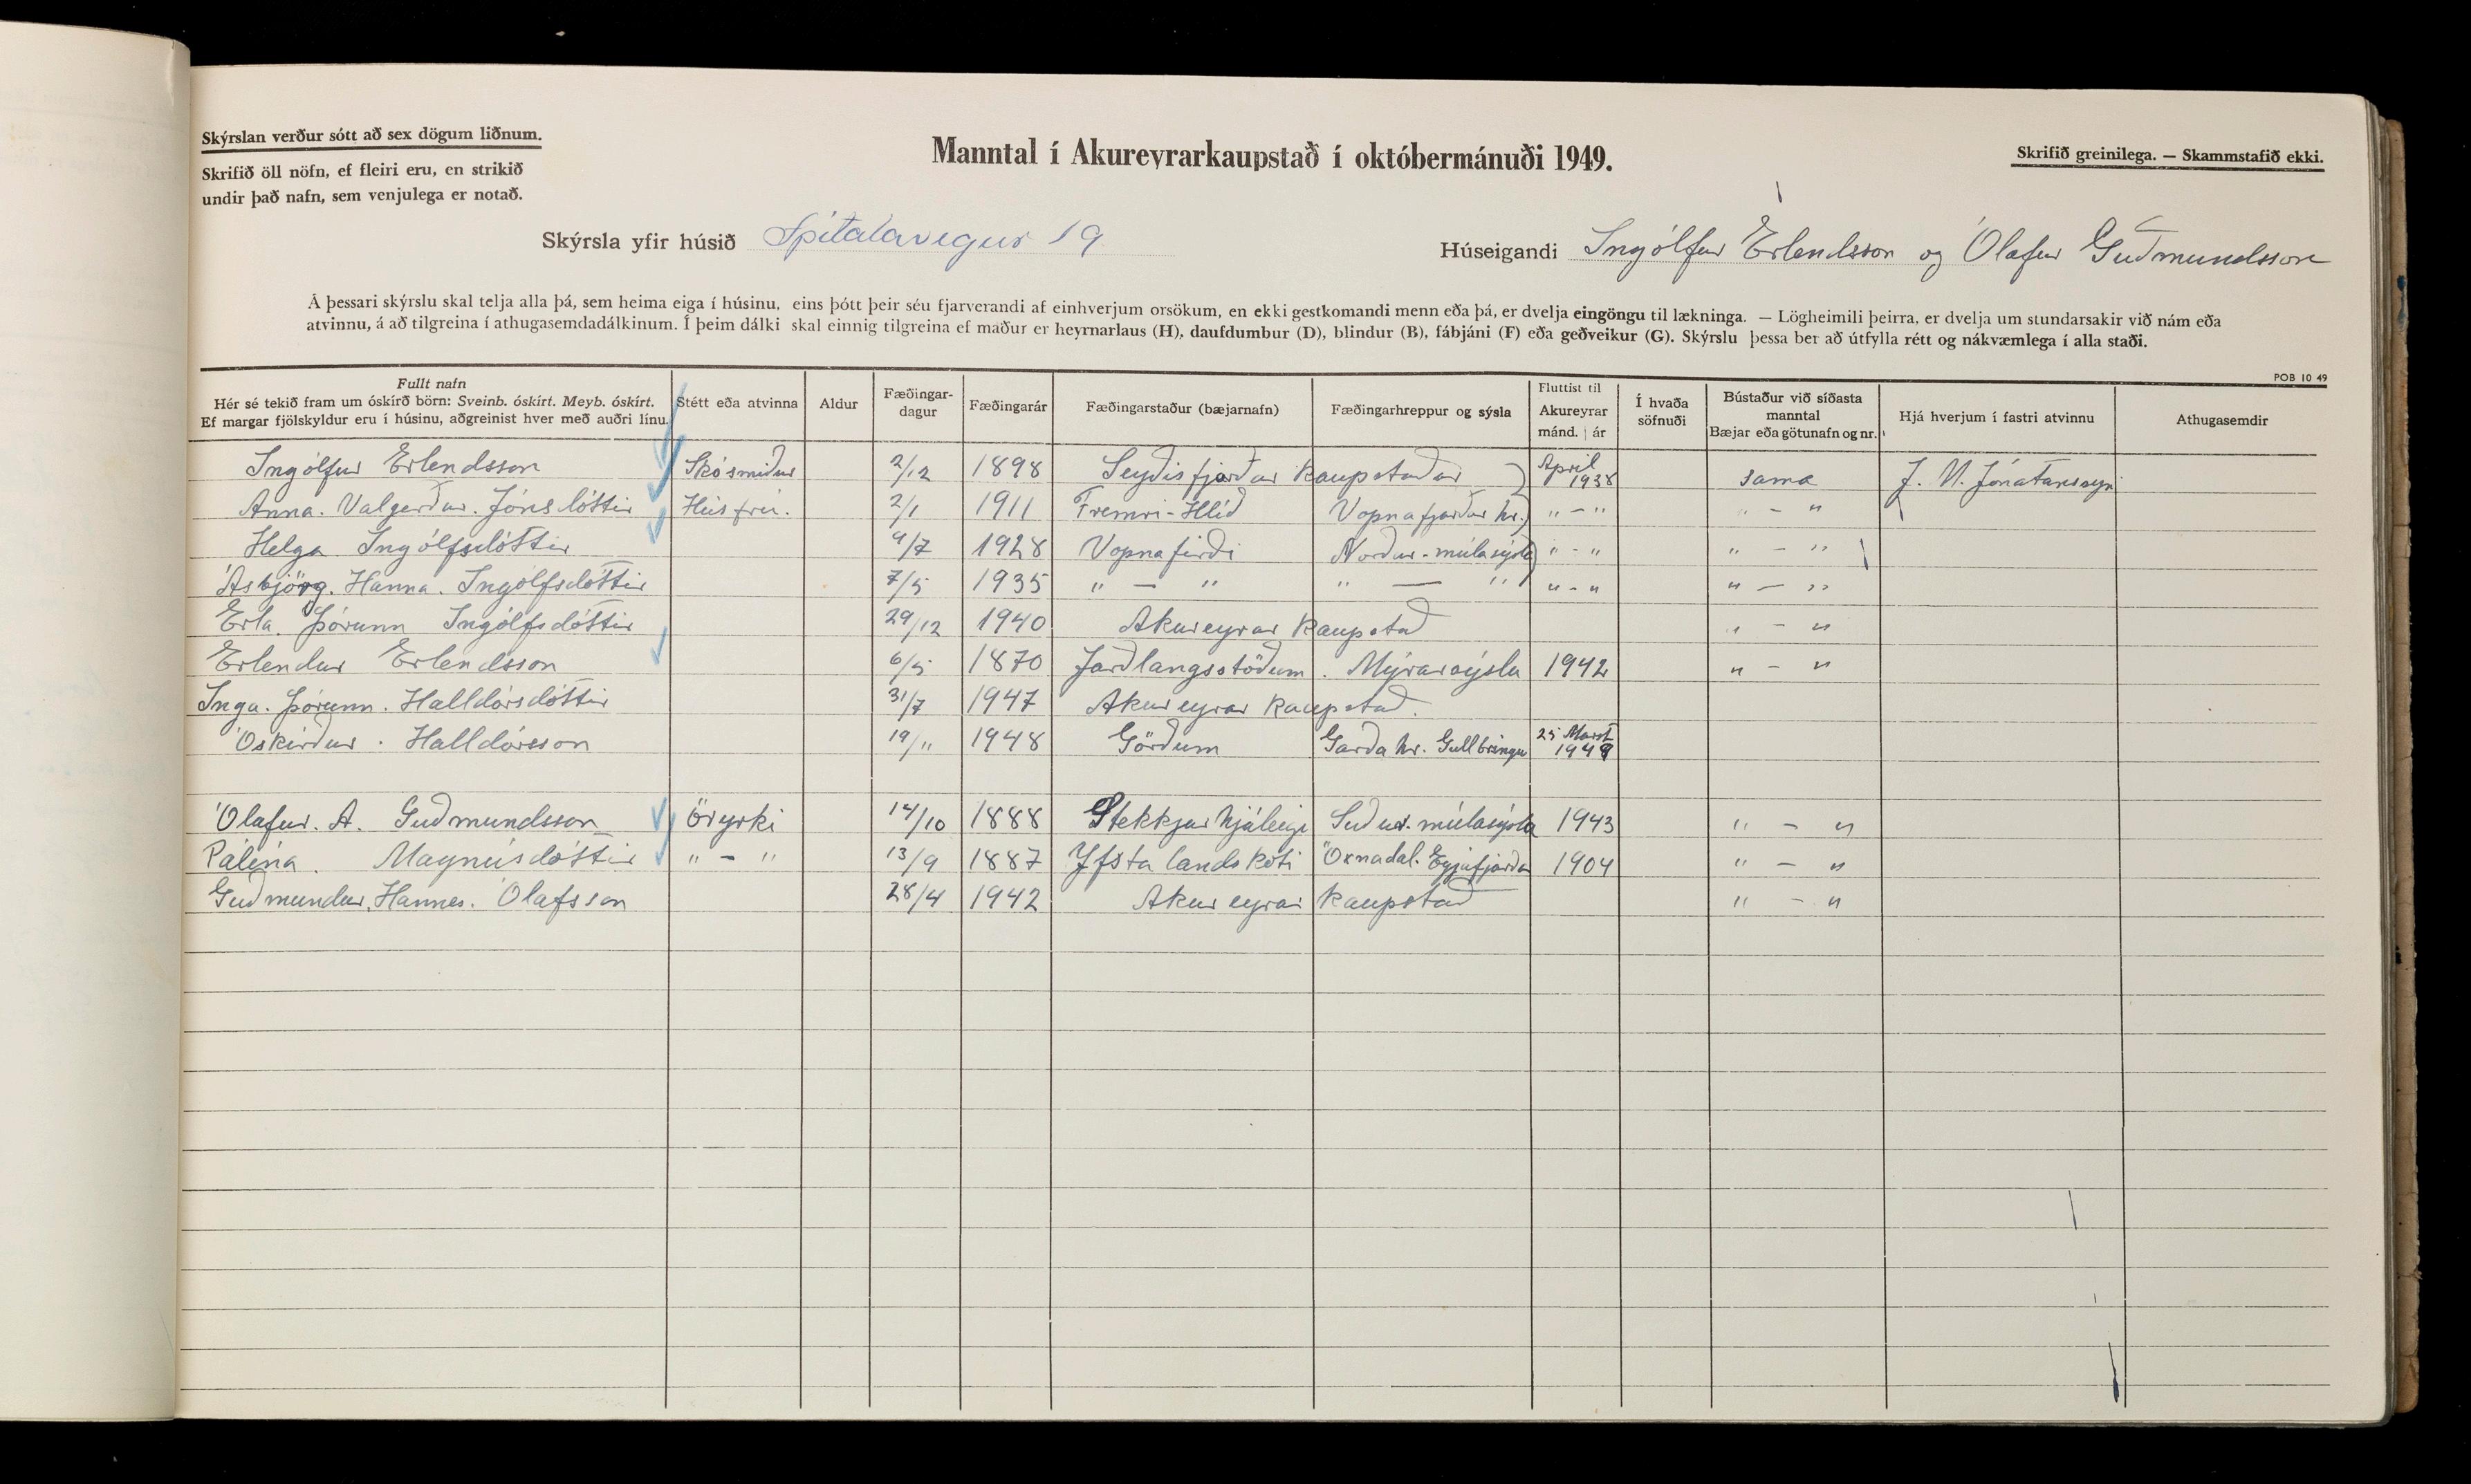 Skýrslan verður sótt að sex dögum liðnum.
Skrifið öll nöfn, ef fleiri eru, en strikið
undir það nafn, sem venjulega er notað.
Manntal í Akureyrarkaupstað í októbermánuði 1949.
Skrifið greinilega. — Skammstafið ekki.
Skýrsla yfir húsið Spítalavegur 19
Húseigandi Ingólfur Erlendsson og Ólafur Guðmundsson
Á þessari skýrslu skal telja alla þá, sem heima eiga í húsinu, eins þótt þeir séu fjarverandi af einhverjum orsökum, en ekki gestkomandi menn eða þá, er dvelja eingöngu til lækninga. — Lögheimili þeirra, er dvelja um stundarsakir við nám eða
atvinnu, á að tilgreina í athugasemdadálkinum. Í þeim dálki skal einnig tilgreina ef maður er heyrnarlaus (H), daufdumbur (D), blindur (B), fábjáni (F) eða geðveikur (G). Skýrslu þessa ber að útfylla rétt og nákvæmlega í alla staði.
POB 10 49
Fullt nafn
Hér sé tekið fram um óskírð börn: Sveinb. óskírt. Meyb. óskírt.
Ef margar fjölskyldur eru í húsinu, aðgreinist hver með auðri línu.
Stétt eða atvinna
Aldur
Fæðingar-
dagur
Fæðingarár
Fæðingarstaður (bæjarnafn)
Fæðingarhreppur og sýsla
Fluttist til
Akureyrar
mánd. | ár
Í hvaða
söfnuði
Bústaður við síðasta
manntal
Bæjar eða götunafn og nr.
Hjá hverjum í fastri atvinnu
Athugasemdir
Ingólfur Erlendsson Skósmiður 2/12 1898 Seyðisfjarðar kaupstaðar April 1938 sama J. M. Jónatanssyni
Anna. Valgerður. Jónsdóttir Húsfrú. 2/1 1911 Fremri-Hlíð Vopnafjarðar hr. " - " " - "
Helga Ingólfsdóttir 9/7 1928 Vopnafirði Norður-múlasýsla " - " " - "
Ásbjörg. Hanna. Ingólfsdóttir 7/5 1935 " — " " — " " - " " — "
Erla. Þórunn Ingólfsdóttir 29/12 1940 Akureyrar kaupstað " - "
Erlendur Erlendsson 6/5 1870 Jarðlangsstöðum. Mýrarsýslu 1942 " - "
Inga. Þórunn. Halldórsdóttir 31/7 1947 Akureyrar kaupstað.
Óskírður. Halldórsson 19/11 1948 Görðum Garða hr. Gullbringu 25 Marst 1949
Ólafur. A. Guðmundsson Öryrki 14/10 1888 Stekkjarhjáleigu Suður-múlasýsla 1943 " - "
Pálína. Magnúsdóttir " - " 13/9 1887 Yfstalandskoti Öxnadal. Eyjafjarðar 1904 " - "
Guðmundur. Hannes. Ólafsson 28/4 1942 Akureyrar kaupstað " - "